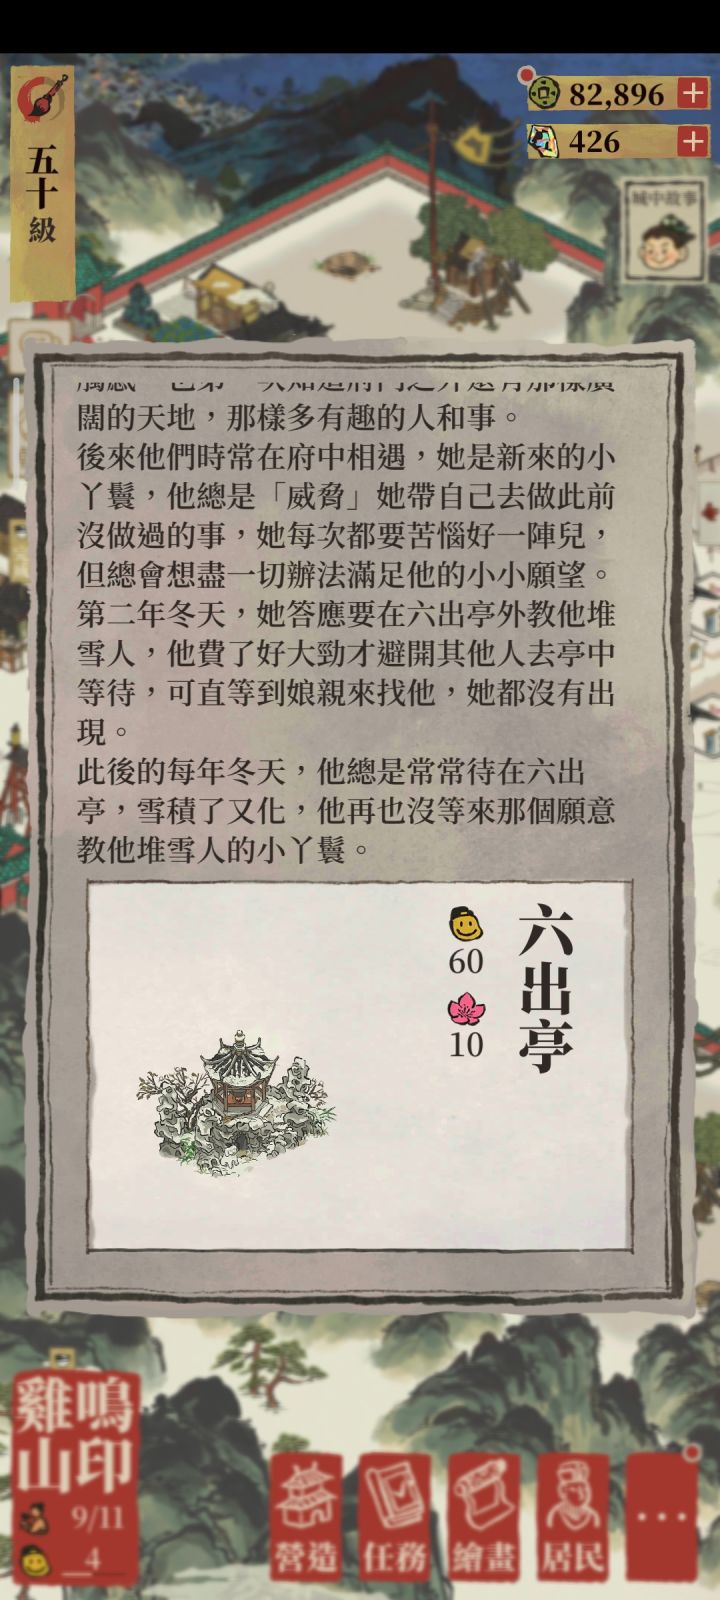 五十級
82,896
426
城中故事
闊的天地，那樣多有趣的人和事。
後來他們時常在府中相遇，她是新來的小
丫鬟，他總是「威脅」她帶自己去做此前
沒做過的事，她每次都要苦惱好一陣兒，
但總會想盡一切辦法滿足他的小小願望。
第二年冬天，她答應要在六出亭外教他堆
雪人，他費了好大勁才避開其他人去亭中
等待，可直等到娘親來找他，她都沒有出
現。
此後的每年冬天，他總是常常待在六出
亭，雪積了又化，他再也沒等來那個願意
教他堆雪人的小丫鬟。
六出亭
60
10
雞鳴
山印
9/11
4
營造
任務
繪畫
居民